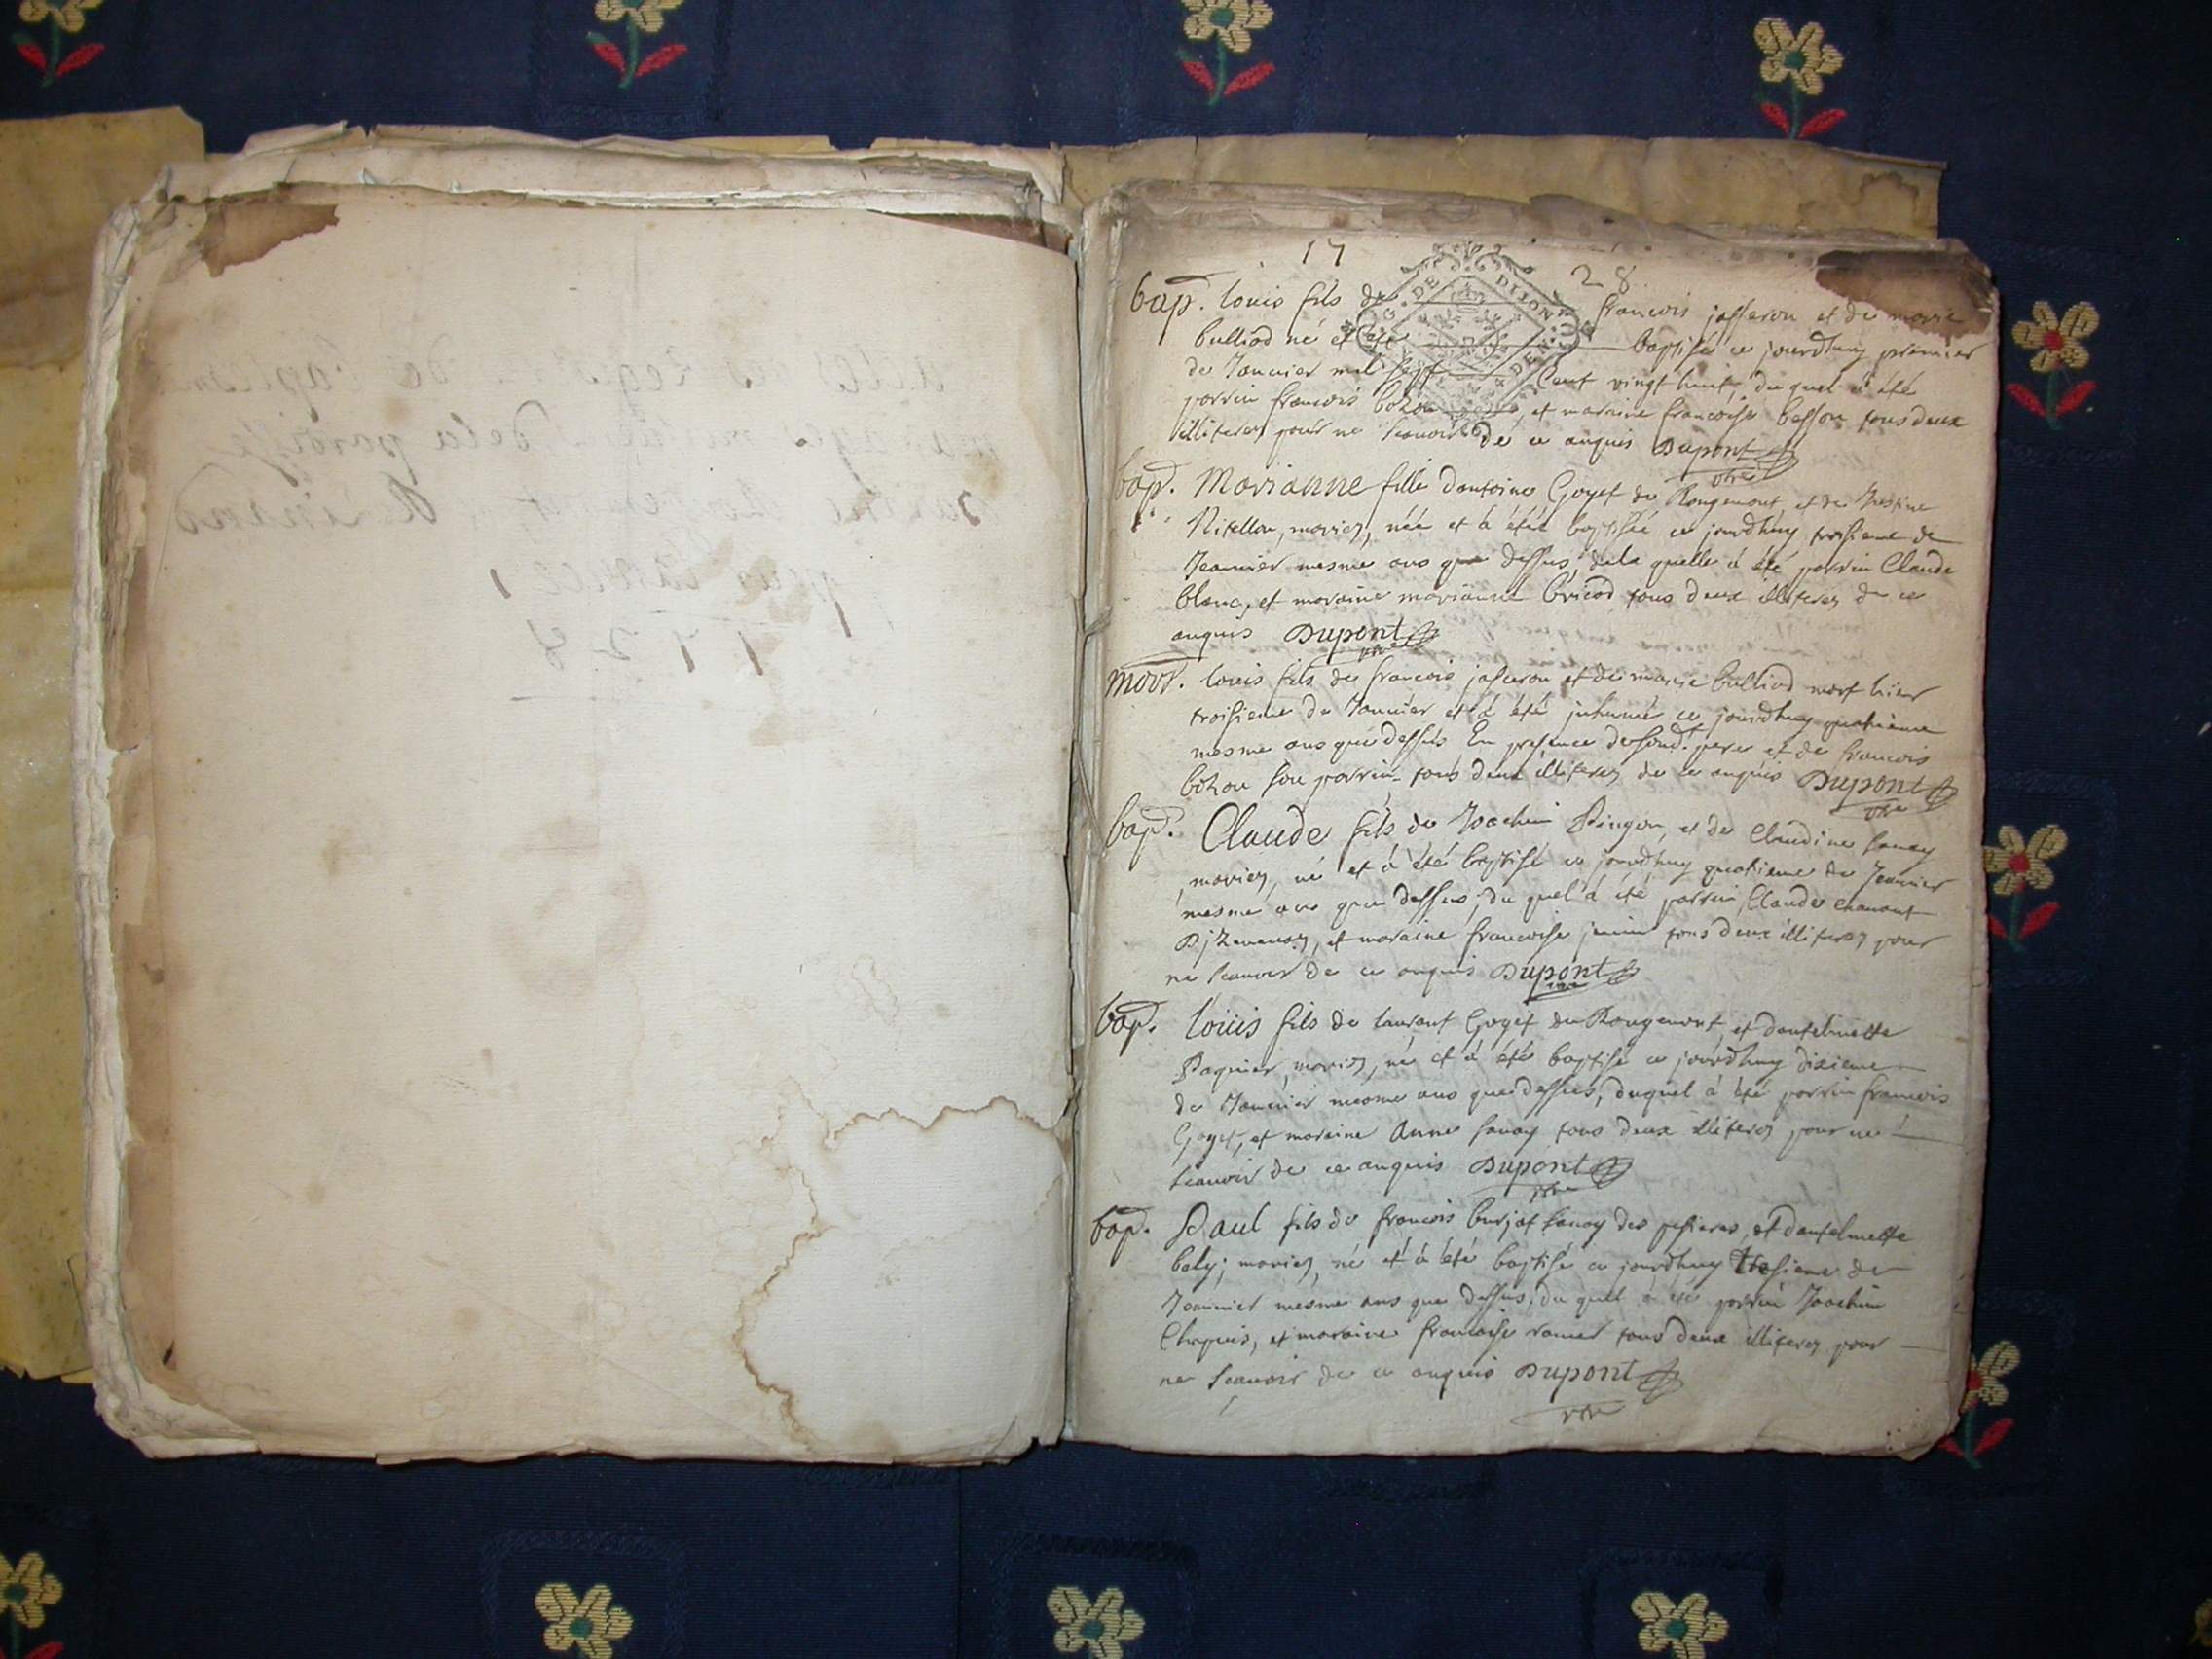 17 28
G. DE DIJON
bap. louis fils de francois josseron et de marie
bulliod né et a été baptisé ce jourdhuy premier
de Januier mil sept Cent vingt huit, du quel a été
parrin francois bozon, et maraine francoise besson tous deux
illiterez pour ne scauoir de ce anquis Dupont
ptre
bap. Marianne fille dantoine Goyet de Rougemont et de
mariez, néé et à étéé baptiséé ce jourdhuy troisieme de
Jeanuier mesme ans que dessus, dela quelle à été parrin Claude
blanc, et maraine marianne bricod tous deux illiterez de ce
anquis Dupont
ptre
mort. louis fils de francois josseron et de marie bulliod mort hier
troisieme de Januier et à été inhumé ce jourdhuy quatrieme
mesme ans que dessus En presence de son d. pere et de francois
bozon son parrin tous deux illiterez de ce anquis Dupont
ptre
bap. Claude fils de Joachim Pingon, et de Claudine sauay
mariez, né et à été baptisé ce jourdhuy quatrieme de Jeanuier
mesme ans que dessus, du quel à été parrin Claude
et maraine francoise tous deux illiterez pour
ne scauoir de ce anquis Dupont
ptre
bap. loüis fils de laurant Goyet de Rougemont et dantelmette
Paquier, mariez, né et à été baptisé ce jourdhuy dixieme
de Januier mesme ans que dessus, duquel à été parrin francois
Goyet, et maraine Anne sauay tous deux illiterez pour ne
scauoir de ce anquis Dupont
ptre
bap. Paul fils de francois burjat sauay des et dantelmette
bely; mariez, né et à été baptisé ce jourdhuy tresieme de
Jeanuier mesme ans que dessus, du quel a été parrin Joachim
Chapuis, et maraine francoise tous deux illiterez pour
ne scauoir de ce anquis Dupont
ptre